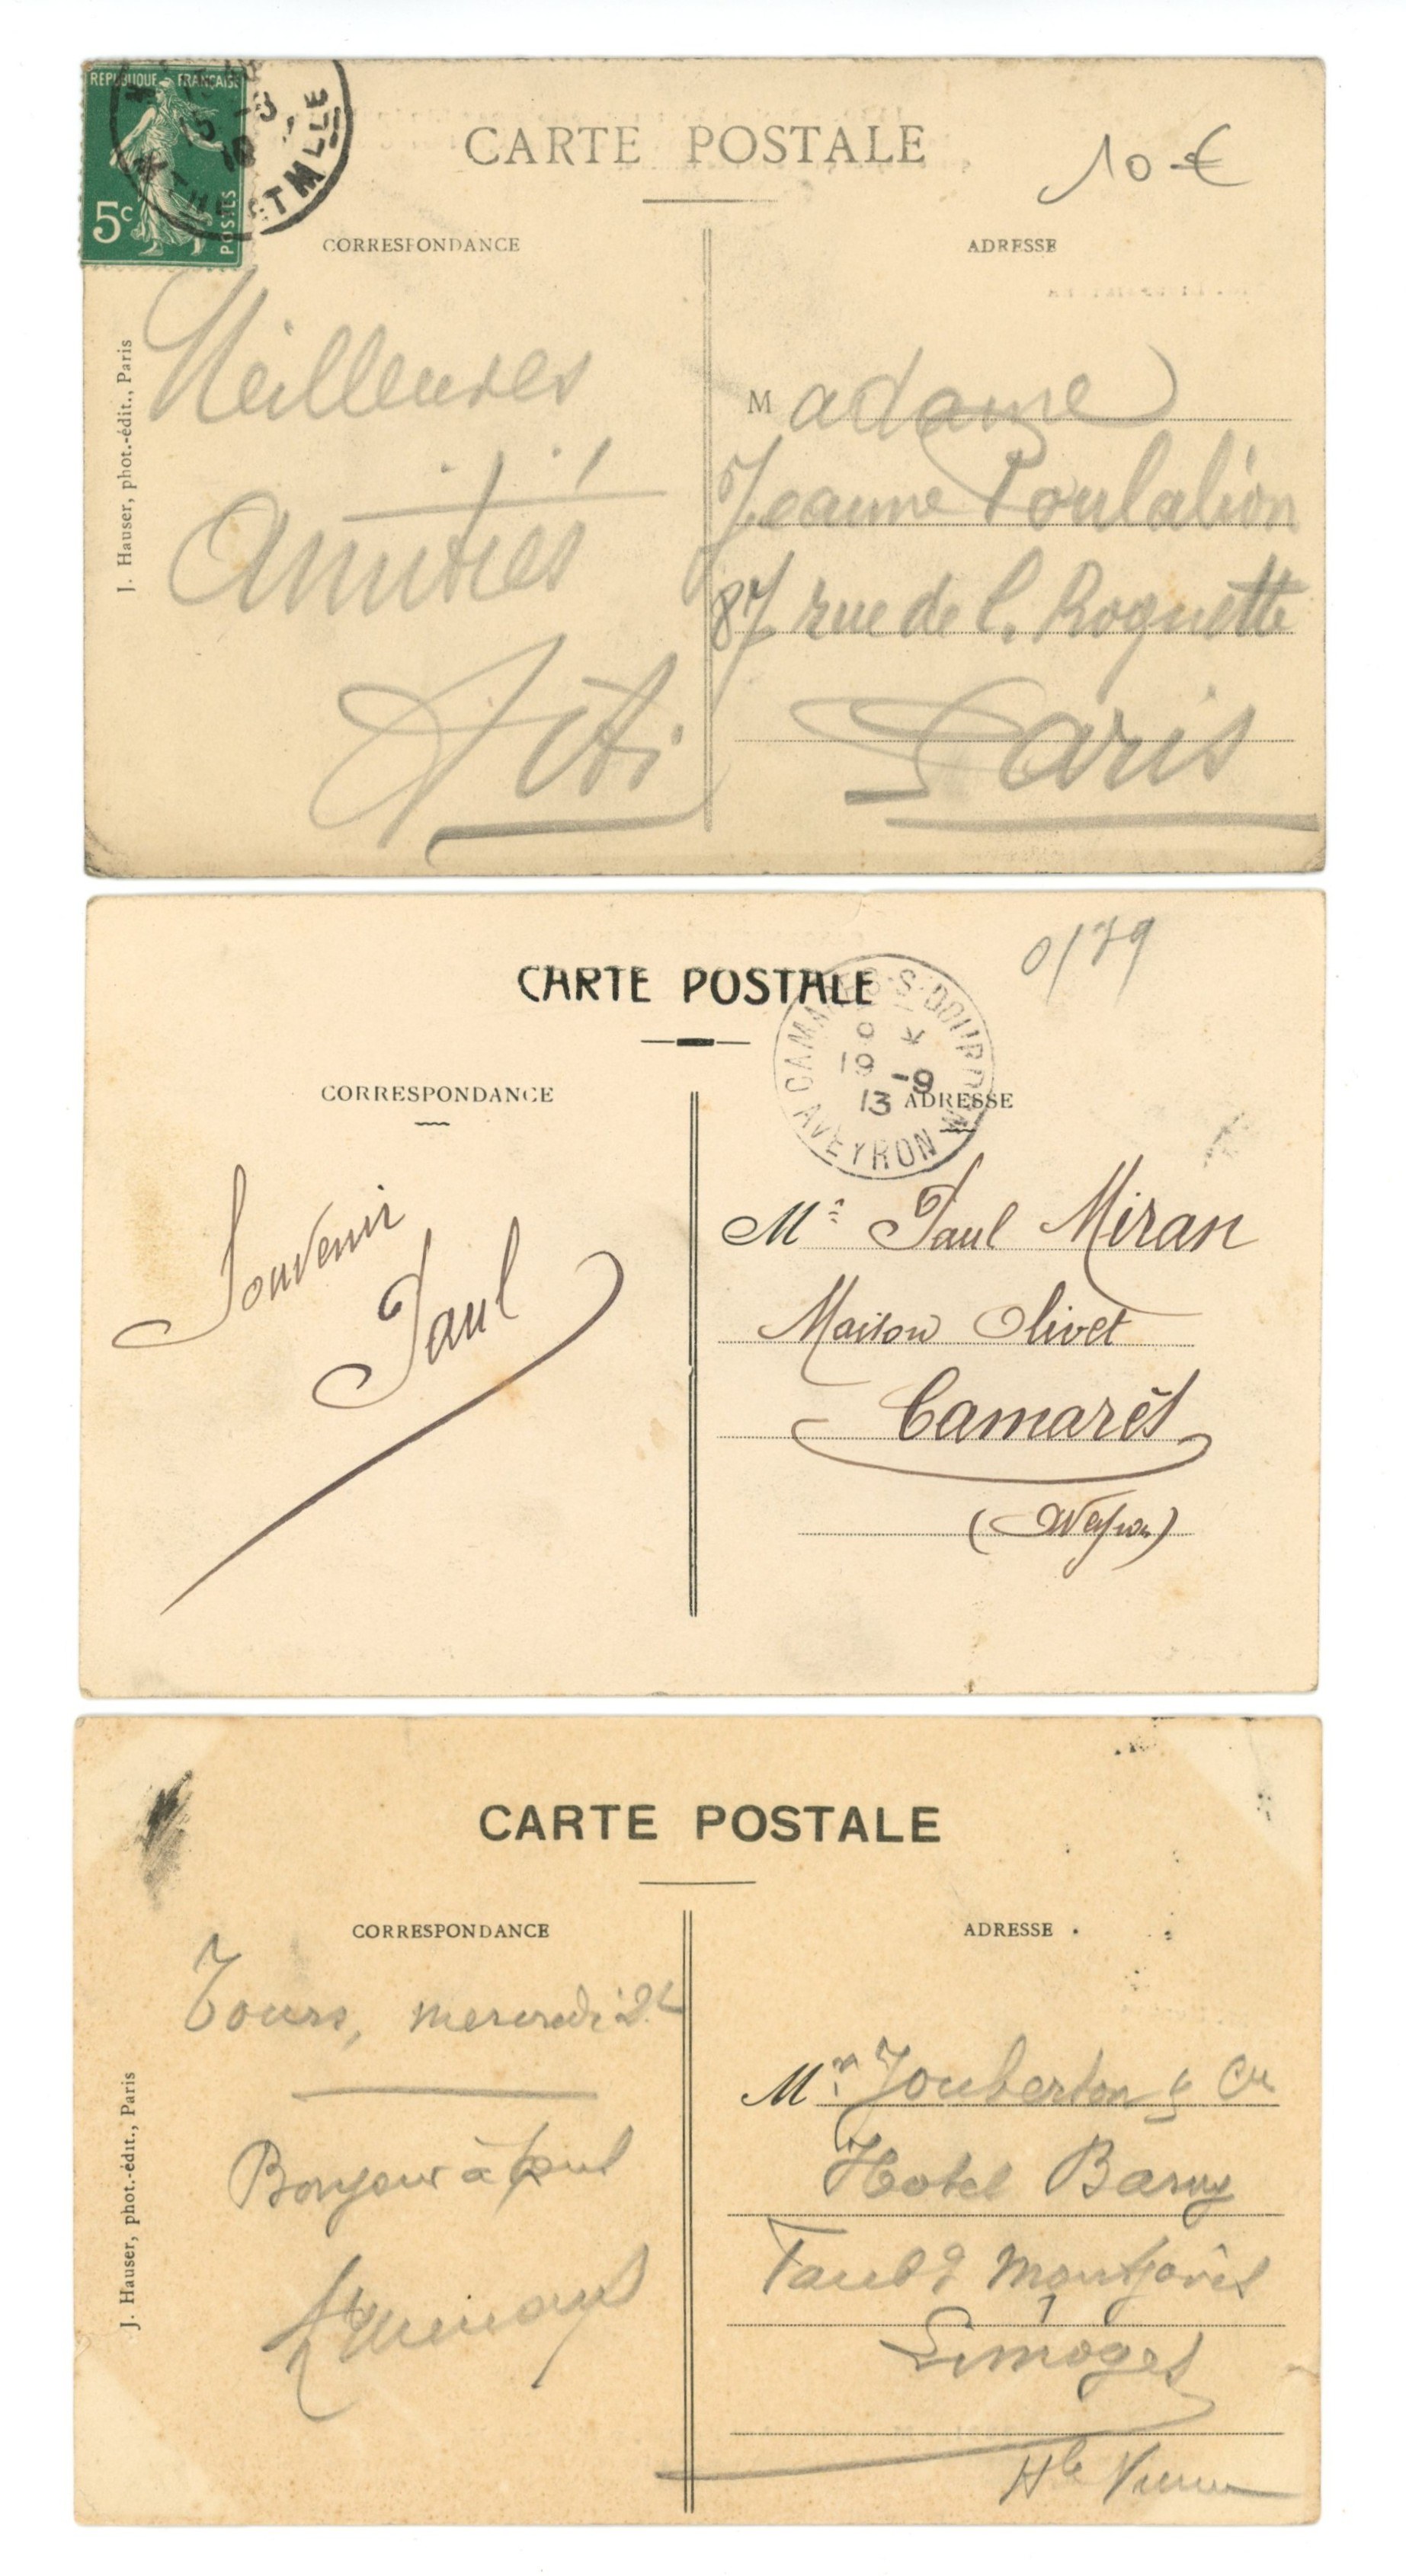 REPUBLIQUE FRANÇAISE
5c
POSTES
CARTE POSTALE
10 €
CORRESPONDANCE
ADRESSE
J. Hauser, phot.-édit., Paris
Meilleures
amitiés
Titi
Madame
Jeanne Poulalion
87 rue de l. Roquette
Paris
CARTE POSTALE
0/79
CAMARES-S-DOURDOU
19 -9
13
AVEYRON
CORRESPONDANCE
ADRESSE
Souvenir
Paul
Mr Paul Miran
Maison Olivet
Camarès
(Aveyron)
CARTE POSTALE
CORRESPONDANCE
ADRESSE
J. Hauser, phot.-édit., Paris
Tours, mercredi
Bonjour à Paul
Mr Jouberton & Cie
Hotel Barny
Faubg Montjovis
Limoges
Hte Vienne